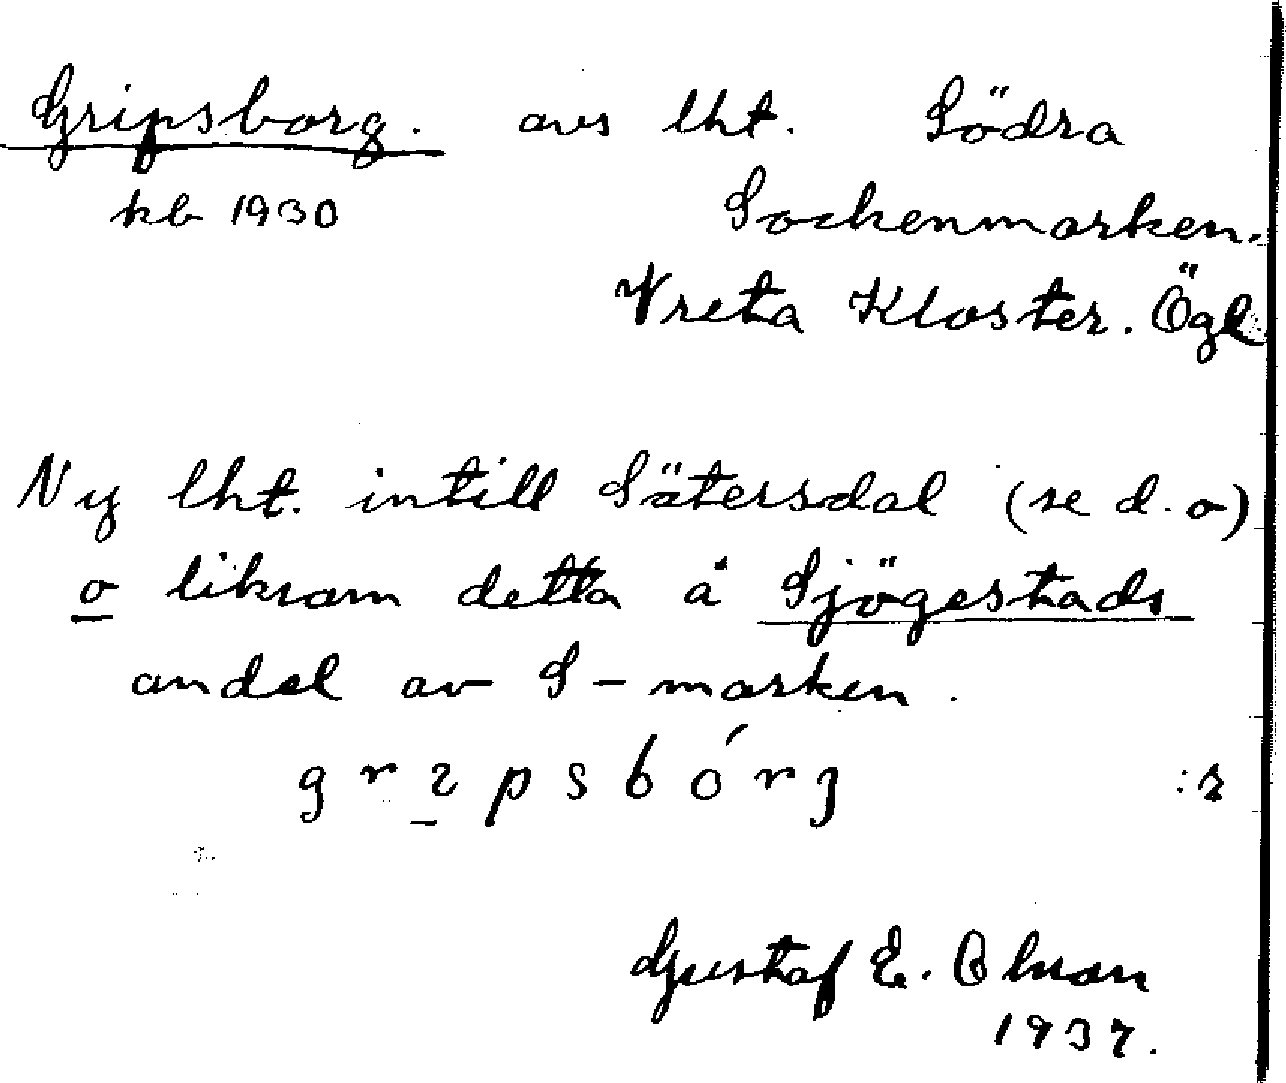 Gripsborg. avs lht. Södra
kb 1930 Sockenmarken.
Vreta Kloster. Ögl
Ny lht. intill Sätersdal (se d. o)
o liksom detta å Sjögestads
andel av S-marken.
grıpsbórj :s
Gustaf E. Olson
1937.